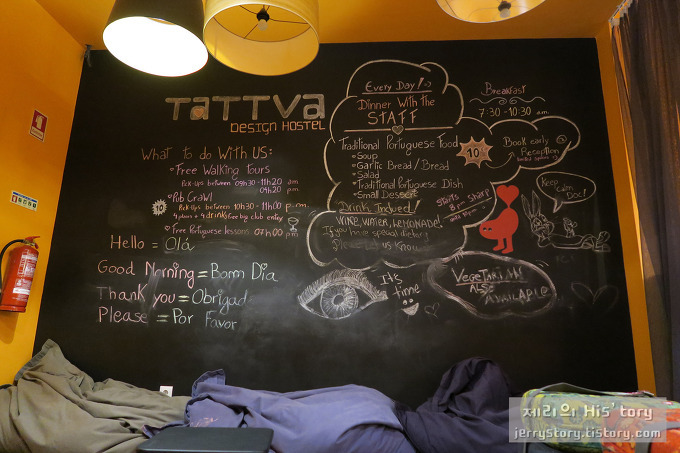 TATTVA
DESIGN HOSTEL
What to do With US:
Free Walking Tours
Pick-Ups between 09h30 - 11h20 am
04h20 pm
Pub Crawl
10
Pick Ups between 10h30 - 11h pm
4 pubs + 4 drinks free by club entry
Free Portuguese lessons 07h00 pm
Hello = Olá
Good Morning = Bom Dia
Thank you = Obrigad
Please = Por Favor
Every Day!
Dinner With the
STAFF
Traditional Portuguese Food
10
Soup
Garlic Bread / Bread
Salad
Traditional Portuguese Dish
Small Dessert
Drink Included!
WINE, WATER, LEMONADE!
If you have special dietary
please let us know
Starts
8pm sharp
Breakfast
7:30 - 10:30 am
Book early @
Reception
Keep calm
Doc!
It's
time
VEGETARIAN
ALSO
AVAILABLE
재리의 His' tory
jerrystory.tistory.com